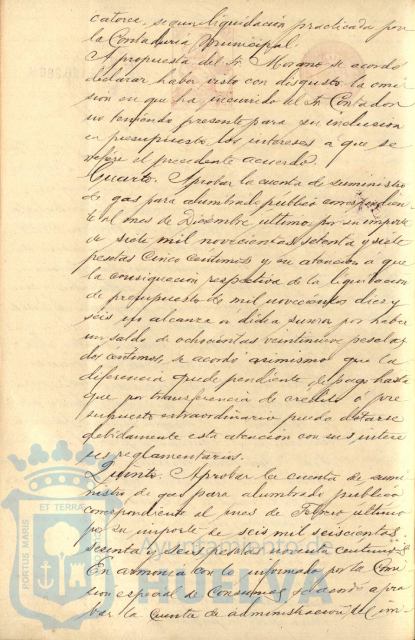 catorce, segun liquidación practicada por
la Contaduria municipal.
A propuesta del Sr. Moreno se acordó
declarar haber visto con disgusto la omi
sion en que ha incurrido el Sr. Contador
no teniendo presente para su inclusion
en presupuesto los intereses a que se
refiere el precedente acuerdo.
Cuarto. Aprobar la cuenta de suministro
de gas para alumbrado publico correspondien
te al mes de Diciembre ultimo por su importe
de siete mil novecientas setenta y siete
pesetas cinco centimos y en atencion a que
la consignacion respectiva de la liquidacion
de presupuesto de mil novecientos diez y
séis no alcanza a dicha suma por haber
un saldo de ochocientas veintinueve pesetas
dos céntimos, se acordó asimismo que la
diferencia quede pendiente de pago hasta
que por transferencia de credito o pre
supuesto extraordinario pueda dotarse
debidamente esta atencion con sus intere
ses reglamentarios.
Quinto. Aprobar la cuenta de sumi
nistro de gas para alumbrado publico
correspondiente al mes de Febrero ultimo
por su importe de seis mil seiscientas
sesenta y seis pesetas centimos
En armonia con lo informado por la Comi
sion especial de Consumos, se acordó apro
bar la cuenta de administracion del im
PORTUS MARIS ET TERRAE
Ayuntamiento de
HUELVA